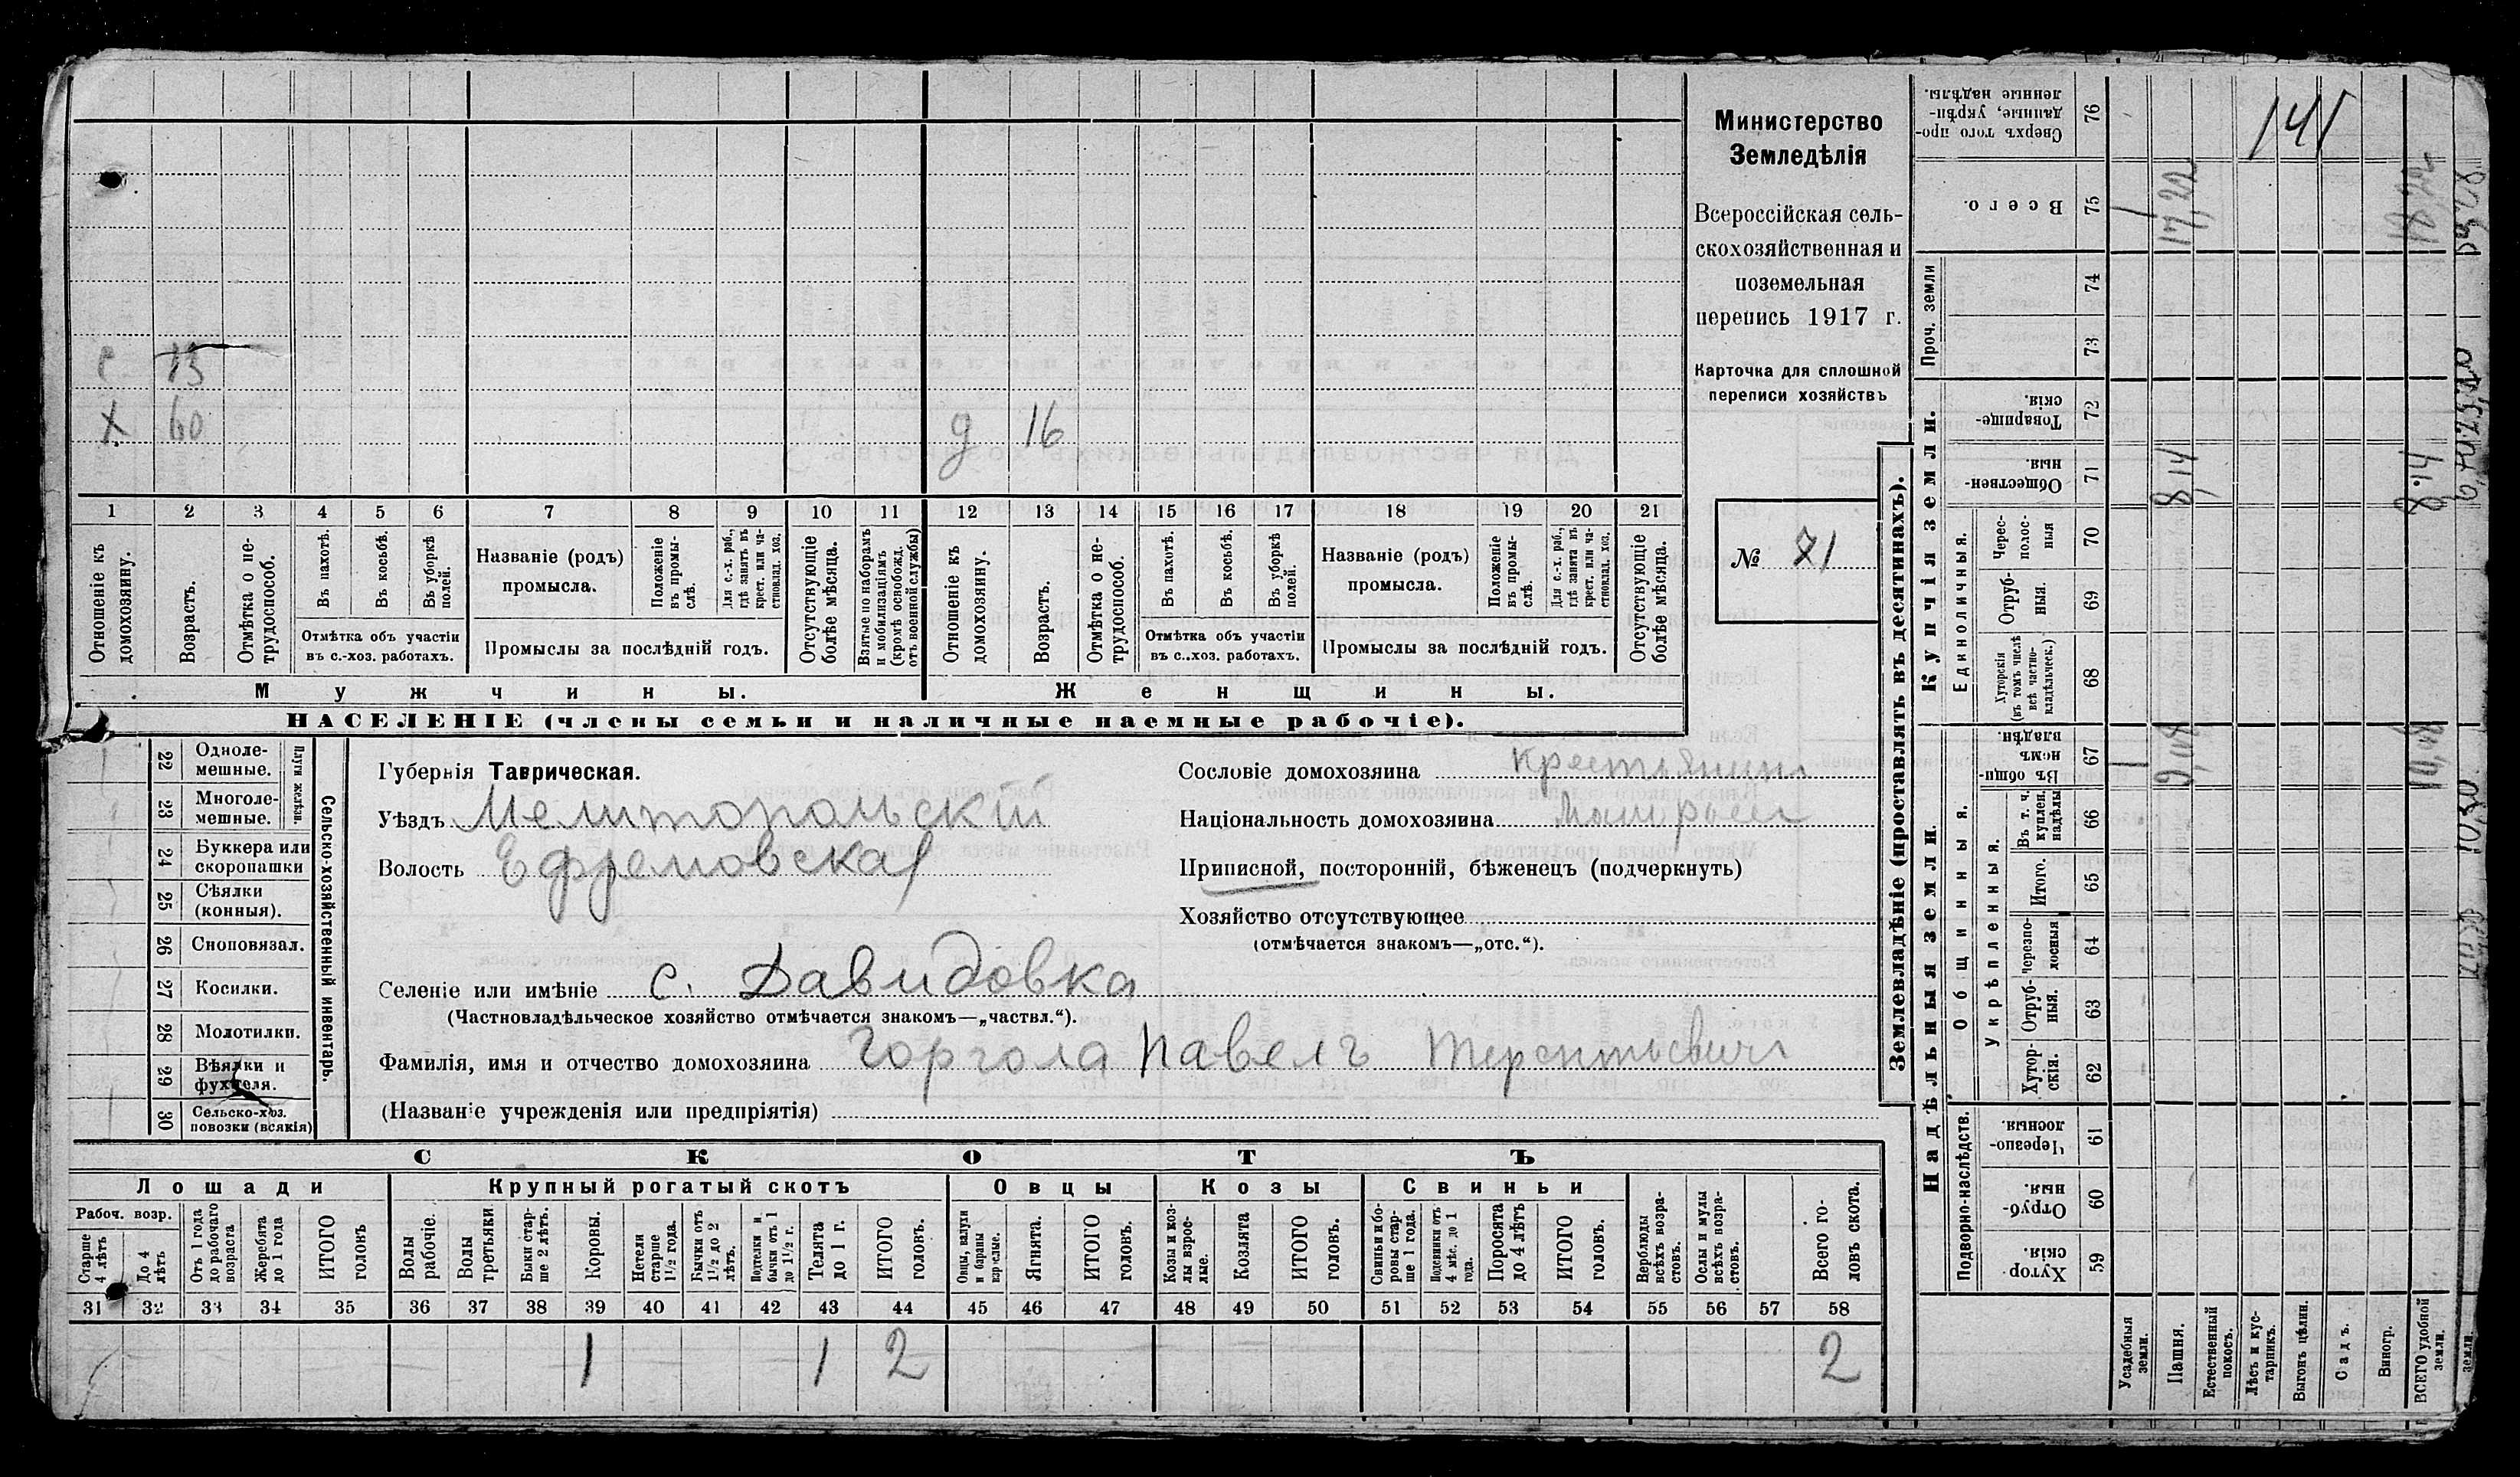 Министерство
Земледѣлія
Всероссійская сель-
скохозяйственная и
поземельная
перепись 1917 г.
Карточка для сплошной
переписи хозяйствъ
№ 71
141
с 13
х 60 д 16
1 2 3 4 5 6 7 8 9 10 11 12 13 14 15 16 17 18 19 20 21
Отношеніе къ домохозяину.
Возрастъ.
Отмѣтка о не-трудоспособ.
Въ пахотѣ.
Въ косьбѣ.
Въ уборкѣ полей.
Отмѣтка объ участіи
въ с.-хоз. работахъ.
Названіе (родъ)
промысла.
Положеніе въ промы-слѣ.
Для с.-х. раб., гдѣ занятъ въ крест. или ча-стновлад. хоз.
Промыслы за послѣдній годъ.
Отсутствующіе болѣе мѣсяца.
Взятые по наборамъ и мобилизаціямъ (кромѣ освобожд. отъ военной службы)
Отношеніе къ домохозяину.
Возрастъ.
Отмѣтка о не-трудоспособ.
Въ пахотѣ.
Въ косьбѣ.
Въ уборкѣ полей.
Отмѣтка объ участіи
въ с.-хоз. работахъ.
Названіе (родъ)
промысла.
Положеніе въ промы-слѣ.
Для с.-х. раб., гдѣ занята въ крест. или ча-стновлад. хоз.
Промыслы за послѣдній годъ.
Отсутствующіе болѣе мѣсяца.
Мужчины. Женщины.
НАСЕЛЕНІЕ (члены семьи и наличные наемные рабочіе).
Сельско-хозяйственный инвентарь.
Плуги желѣзн.
22 Одноле-мешные.
23 Многоле-мешные.
24 Буккера или скоропашки
25 Сѣялки (конныя).
26 Сноповязал.
27 Косилки.
28 Молотилки.
29 Вѣялки и фухтеля.
30 Сельско-хоз. повозки (всякія)
Губернія Таврическая.
Уѣздъ Мелитопольскій
Волость Ефремовская
Селеніе или имѣніе с. Давидовка
(Частновладѣльческое хозяйство отмѣчается знакомъ—„частвл.“).
Фамилія, имя и отчество домохозяина Горгола Павелъ Терентьевичъ
(Названіе учрежденія или предпріятія)
Сословіе домохозяина крестьянинъ
Національность домохозяина малороссъ
Приписной, посторонній, бѣженецъ (подчеркнуть)
Хозяйство отсутствующее
(отмѣчается знакомъ—„отс.“).
СКОТЪ
Лошади Крупный рогатый скотъ Овцы Козы Свиньи
Рабоч. возр.
Старше 4 лѣтъ
До 4 лѣтъ
Отъ 1 года до рабочаго возраста
Жеребята до 1 года
ИТОГО головъ
Волы рабочіе.
Волы третьяки.
Быки стар-ше 2 лѣтъ.
Коровы.
Нетели старше 1½ года.
Бычки отъ 1½ до 2 лѣтъ.
Подтелки и бычки отъ 1 до 1½ г.
Телята до 1 г.
ИТОГО головъ.
Овцы, валухи и бараны взрослые.
Ягнята.
ИТОГО головъ.
Козы и коз-лы взрос-лые.
Козлята
ИТОГО головъ.
Свиньи и бо-ровы стар-ше 1 года.
Подсвинки отъ 4 мѣс. до 1 года.
Поросята до 4 лѣтъ
ИТОГО головъ.
Верблюды всѣхъ возра-стовъ.
Ослы и мулы всѣхъ возра-стовъ.
Всего го-ловъ скота.
31 32 33 34 35 36 37 38 39 40 41 42 43 44 45 46 47 48 49 50 51 52 53 54 55 56 57 58
1 1 2 2
Землевладѣніе (проставлять въ десятинахъ).
Надѣльныя земли. Купчія земли.
Подворно-наслѣдств.
Хутор-скія. 59
Отруб-ныя. 60
Черезпо-лосныя 61
Общинныя.
Укрѣпленныя.
Хутор-скія. 62
Отруб-ныя. 63
Черезпо-лосныя 64
Итого. 65
Въ т. ч. куплен. надѣлы 66
Въ общи-номъ владѣн. 67
Единоличныя.
Хуторскія (въ томъ числѣ всѣ частно-владѣльческ.) 68
Отруб-ныя. 69
Черес-полос-ныя 70
Обществен-ныя. 71
Товарище-скія. 72
Проч. земли
73
74
Всего. 75
Сверхъ того про-данные, укрѣп-ленные надѣлы. 76
Усадебныя земли. 1 1
Пашня. 9,08 8,14 17,22
Естественный покосъ.
Лѣсъ и кус-тарникъ.
Выгонъ цѣлин.
Садъ.
Виногр.
ВСЕГО удобной земли. 10,08 8,14 18,22
земли.